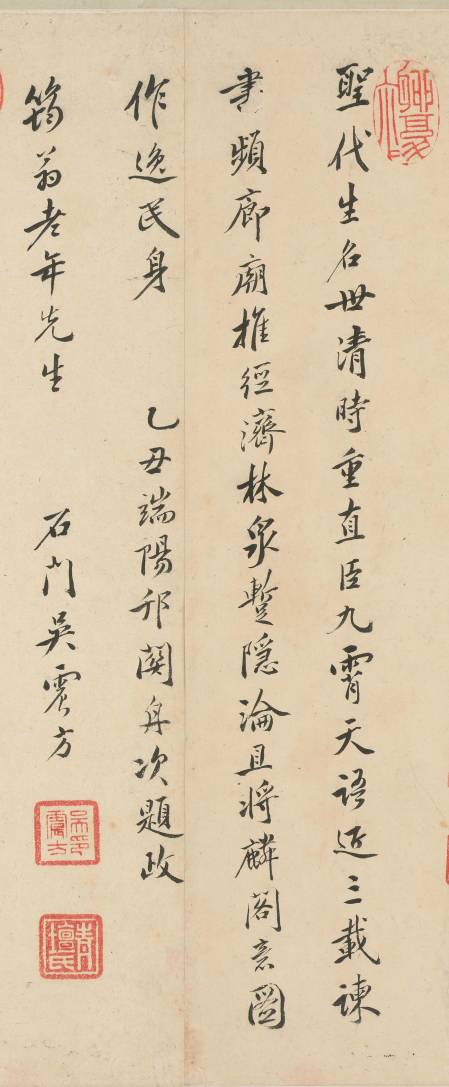 聖代生名世清時重直臣九霄天語近三載諫
書頻廊廟推經濟林泉暫隱淪且將麟閣意圖
作逸民身
乙丑端陽邗關舟次題政
筠翁老年先生
石門吳震方
吳印震方
青壇氏